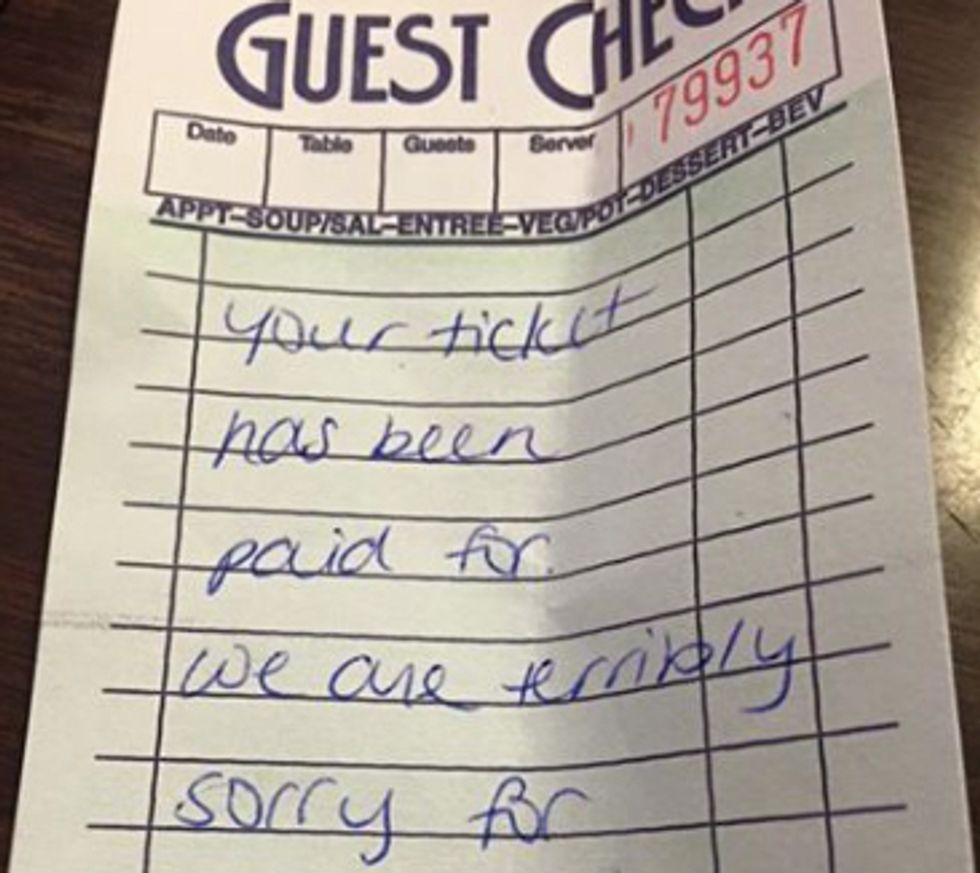 GUEST CHEC
79937
Date Table Guests Server
APPT–SOUP/SAL–ENTREE–VEG/POT–DESSERT–BEV
your ticket
has been
paid for.
we are terribly
sorry for